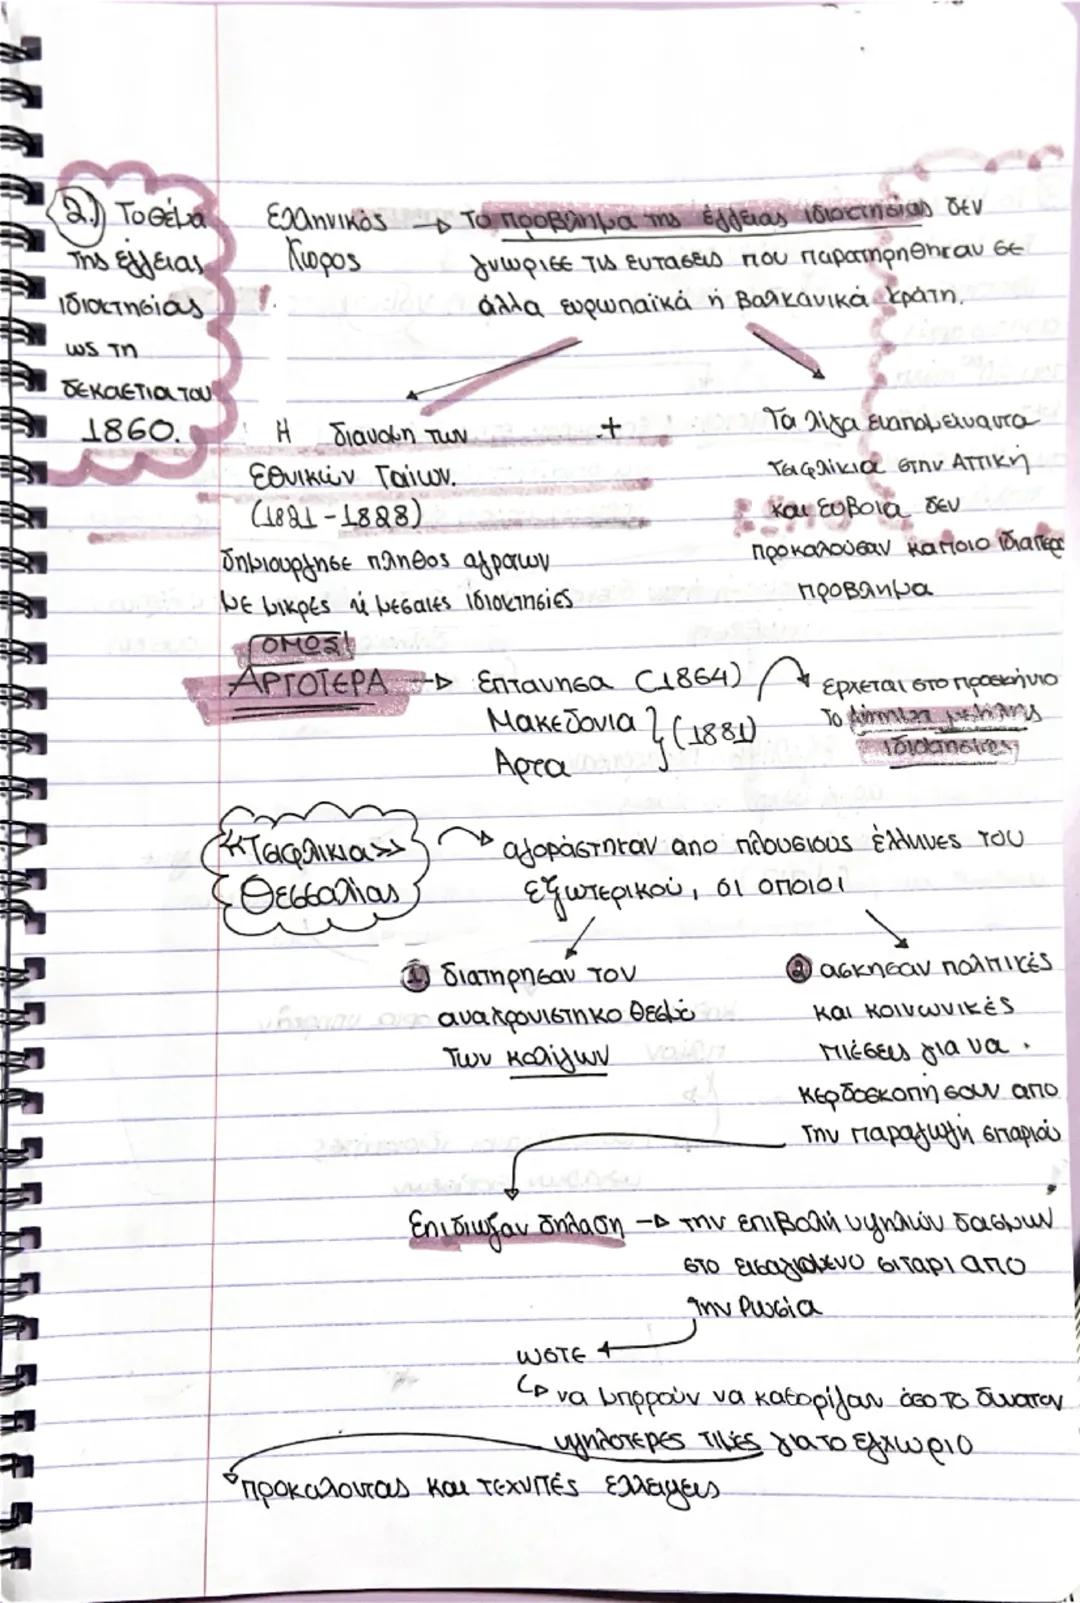 2.) Το θέμα
της έγγειας
ιδιοκτησίας
ως τη
δεκαετία του
1860.
Ελληνικός Χώρος → Το πρόβλημα της έγγειας ιδιοκτησίας δεν
γνώρισε τις εντασεις που παρατηρηθηκαν σε
άλλα ευρωπαϊκά ή βαλκανικά κράτη.
Η διανομη των +
Εθνικών Γαίων.
(1821-1828)
δημιουργησε πληθος αγροτων
με μικρές ή μεσαιες ιδιοκτησιες
Τα λίγα εναπομειναντα
τσιφλίκια στην Αττική
και Ευβοια δεν
προκαλούσαν καποιο ιδιαιτερο
προβλημα
ΌΜΩΣ!
ΑΡΓΟΤΕΡΑ → Επτανησα (1864)
Μακεδονια } (1881)
Αρτα
ερχεται στο προσκήνιο
Το ζήτημα μεγάλης
ιδιοκτησίας
«Τσιφλικια»
Θεσσαλίας
→ αγοράστηκαν απο πλουσιους έλληνες του
εξωτερικού, οι οποιοι
1 διατηρησαν τον
αναχρονιστηκο θεσμό
των κολίγων
2 ασκησαν πολιτικές
και κοινωνικές
πιέσεις για να
κερδοσκοπήσουν απο
την παραγωγή σιταριού
Επιδιωξαν δηλαδη → την επιβολή υψηλών δασμων
στο εισαγομενο σιταρι απο
την Ρωσία
ωστε
↳ να μπορούν να καθορίζουν όσο το δυνατον
υψηλοτερες τιμες για το εγχωριο
προκαλοντας και τεχνιτές ελλειψεις